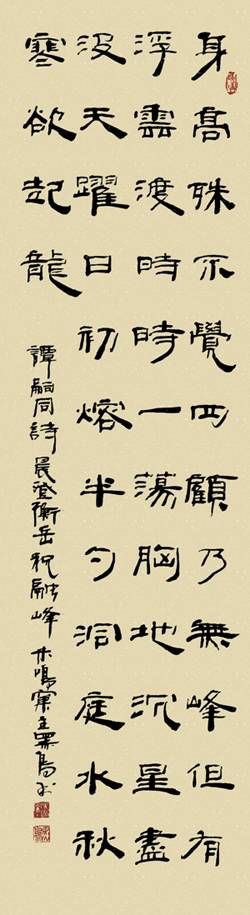 身高殊不覺四顧乃無峰但有
浮雲渡時時一蕩胸地沉星盡
沒天躍日初熔半勺洞庭水秋
寒欲起龍
譚嗣同詩晨登衡岳祝融峰